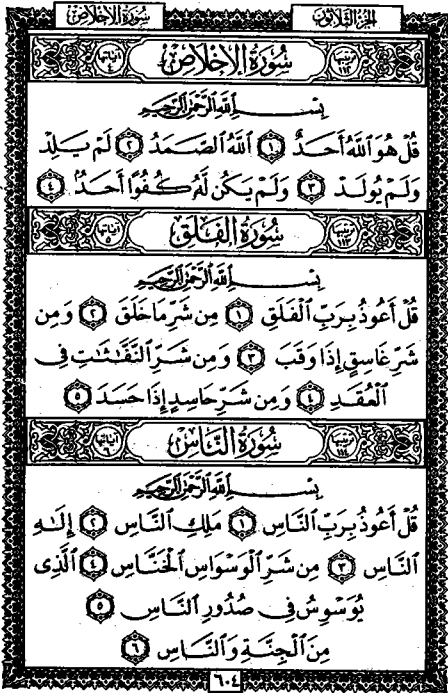 الجزء الثلاثون سورة الإخلاص
ترتيبها ١١٢ سُورَةُ الإِخْلَاصِ آياتها ٤
بِسْمِ اللَّهِ الرَّحْمَٰنِ الرَّحِيمِ
قُلْ هُوَ اللَّهُ أَحَدٌ ١ اللَّهُ الصَّمَدُ ٢ لَمْ يَلِدْ
وَلَمْ يُولَدْ ٣ وَلَمْ يَكُن لَّهُ كُفُوًا أَحَدٌ ٤
ترتيبها ١١٣ سُورَةُ الفَلَقِ آياتها ٥
بِسْمِ اللَّهِ الرَّحْمَٰنِ الرَّحِيمِ
قُلْ أَعُوذُ بِرَبِّ الْفَلَقِ ١ مِن شَرِّ مَا خَلَقَ ٢ وَمِن
شَرِّ غَاسِقٍ إِذَا وَقَبَ ٣ وَمِن شَرِّ النَّفَّٰثَٰتِ فِى
الْعُقَدِ ٤ وَمِن شَرِّ حَاسِدٍ إِذَا حَسَدَ ٥
ترتيبها ١١٤ سُورَةُ النَّاسِ آياتها ٦
بِسْمِ اللَّهِ الرَّحْمَٰنِ الرَّحِيمِ
قُلْ أَعُوذُ بِرَبِّ النَّاسِ ١ مَلِكِ النَّاسِ ٢ إِلَٰهِ
النَّاسِ ٣ مِن شَرِّ الْوَسْوَاسِ الْخَنَّاسِ ٤ الَّذِى
يُوَسْوِسُ فِى صُدُورِ النَّاسِ ٥
مِنَ الْجِنَّةِ وَالنَّاسِ ٦
٦٠٤